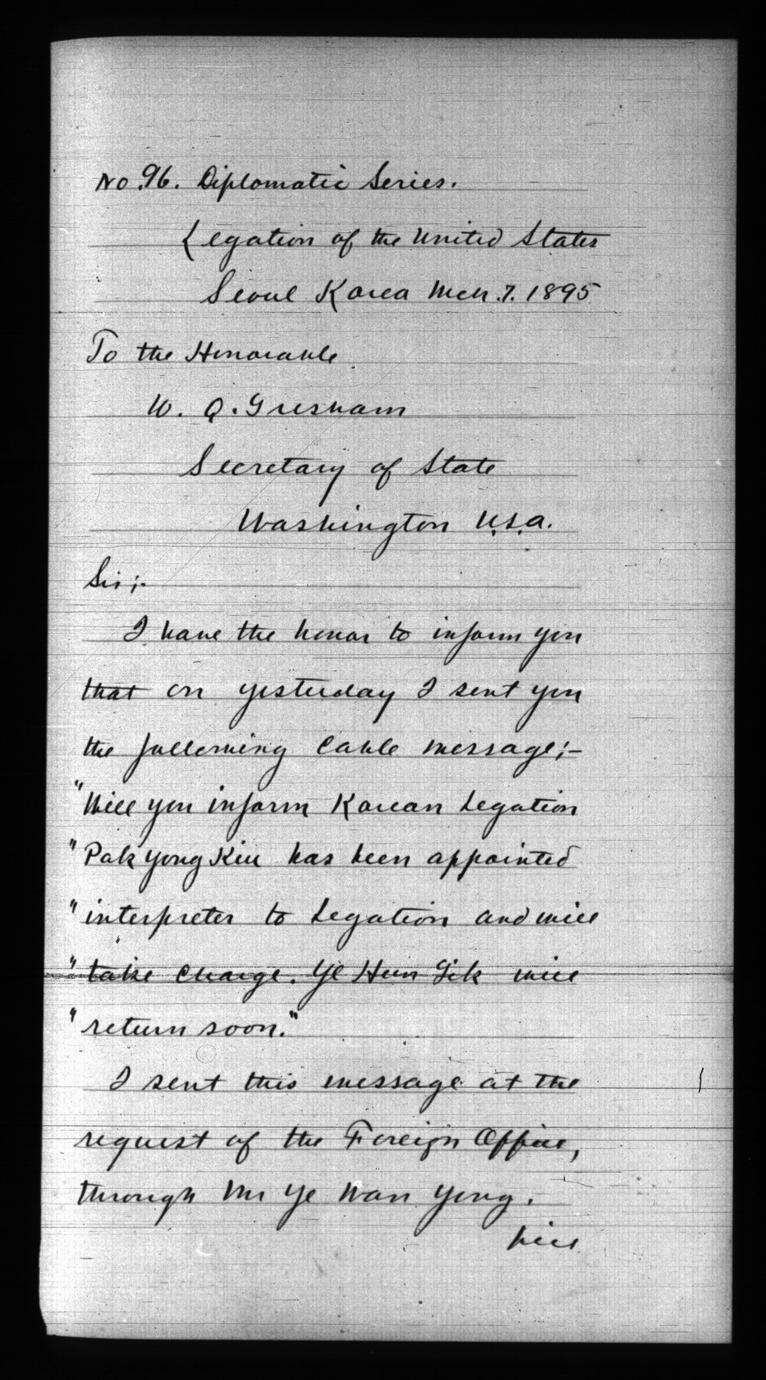 No. 96. Diplomatic Series.
Legation of the United States
Seoul Korea Mch. 7. 1895
To the Honorable
W. Q. Gresham
Secretary of State
Washington U.S.A.
Sir;-
I have the honor to inform you
that on yesterday I sent you
the following cable message;-
"Will you inform Korean Legation
"Pak Yong Kiu has been appointed
"interpreter to Legation and will
"take charge. Ye Hun Sik will
"return soon."
I sent this message at the
request of the Foreign Office,
through Mr Ye Wan Yong.